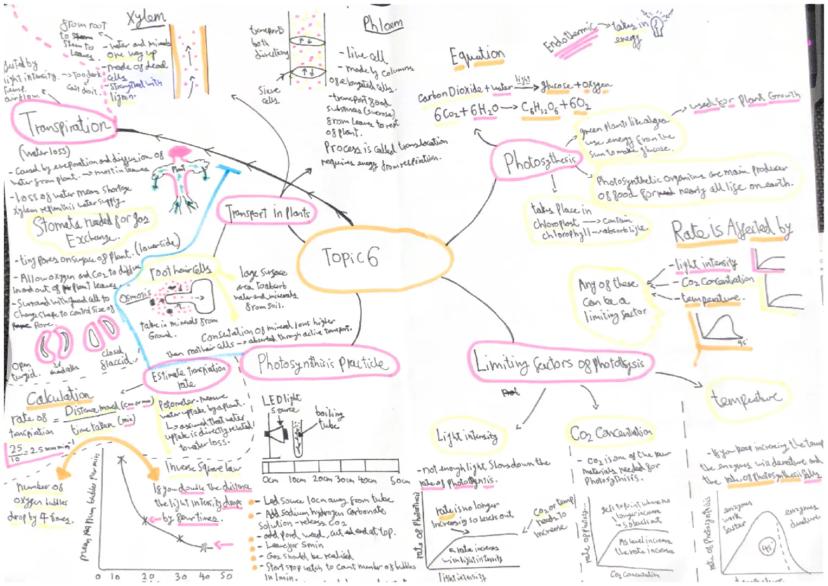 Xylem
from root
to stem to
leaves.
- water and minerals
one way up
- made of dead
cells
- strengthed with
lignin.
transport
both
directions
Sieve
cells.
Phloem
- live cell
- made by columns
of elongated cells.
- transport food
substances (sucrose)
from leaves to rest
of plant.
Process is called translocation
requires energy from respiration.
Equation
Endothermic → takes in
energy
Carbon Dioxide + water → light → glucose + oxygen
6CO2 + 6H2O → C6H12O6 + 6O2
Transpiration
(water loss)
- caused by evaporation and diffusion of
water from plant. → most in leaves
- loss of water mean shortage
xylem replenish water supply.
Plant
Transport in Plants
Topic 6
Photosythesis
green plants like algae
use energy from the
sun to make glucose.
used for Plant Growth
Photosynthetic organisms are main producer
of food for nearly all life on earth.
takes place in
chloroplast → contain
chlorophyll → absorb light.
Rate Is Affected by
- light intensity
- CO2 Concentration
- temperature.
45
Any of these
can be a
limiting factor
Stomata needed for gas
Exchange.
- tiny pores on surface of plant. (lower side)
- Allow oxygen and CO2 to diffuse
in and out of plant leaves.
- Surround with guard cell to
change shape to control size of
Pore.
Open
turgid
closed
flaccid
root hair cells
Osmosis
large surface
area to absorb
water and minerals
from soil.
take in minerals from
Ground.
Concentration of mineral ions higher
than root hair cells → absorbed through active transport.
Estimate Transpiration
rate
Photosynthisis Practicle
Limiting factors of Photothysis
Calculation
rate of
transpiration = Distance moved (cm or mm)
time taken (min)
25
10 = 2.5 mm min-1
Potometer - measure
water uptake by a plant
↳ assumed that water
uptake is directly related
to water loss.
LED light
source
boiling
tube
0cm 10cm 20cm 30cm 40cm 50cm
- Led source 10cm away from tube
- Add sodium hydrogen carbonate
solution - release CO2
- add pond weed, cut end at top.
- Leave for 5min
- Gas should be realised
- Start stop watch to count number of bubbles
in 1 min.
Number of
oxygen bubbles
drop by 4 times.
Inverse square law
If you double the distance
the light intensity drops
by four times.
0 10 20 30 40 50
Light intensity
- not enough light slows down the
rate of Photothysis.
rate of Photothysis
rate is no longer
increasing so levels out
CO2 or temp
needs to
increase
light intensity
CO2 Concentration
- CO2 is one of the raw
materials needed for
Photosynthisis.
CO2 Concentration
temperature
- If you keep increasing the temp
the enzymes will denature and
the rate of Photosynthisis
rate of Photosynthisis
enzymes
work
faster
45
enzymes
denature